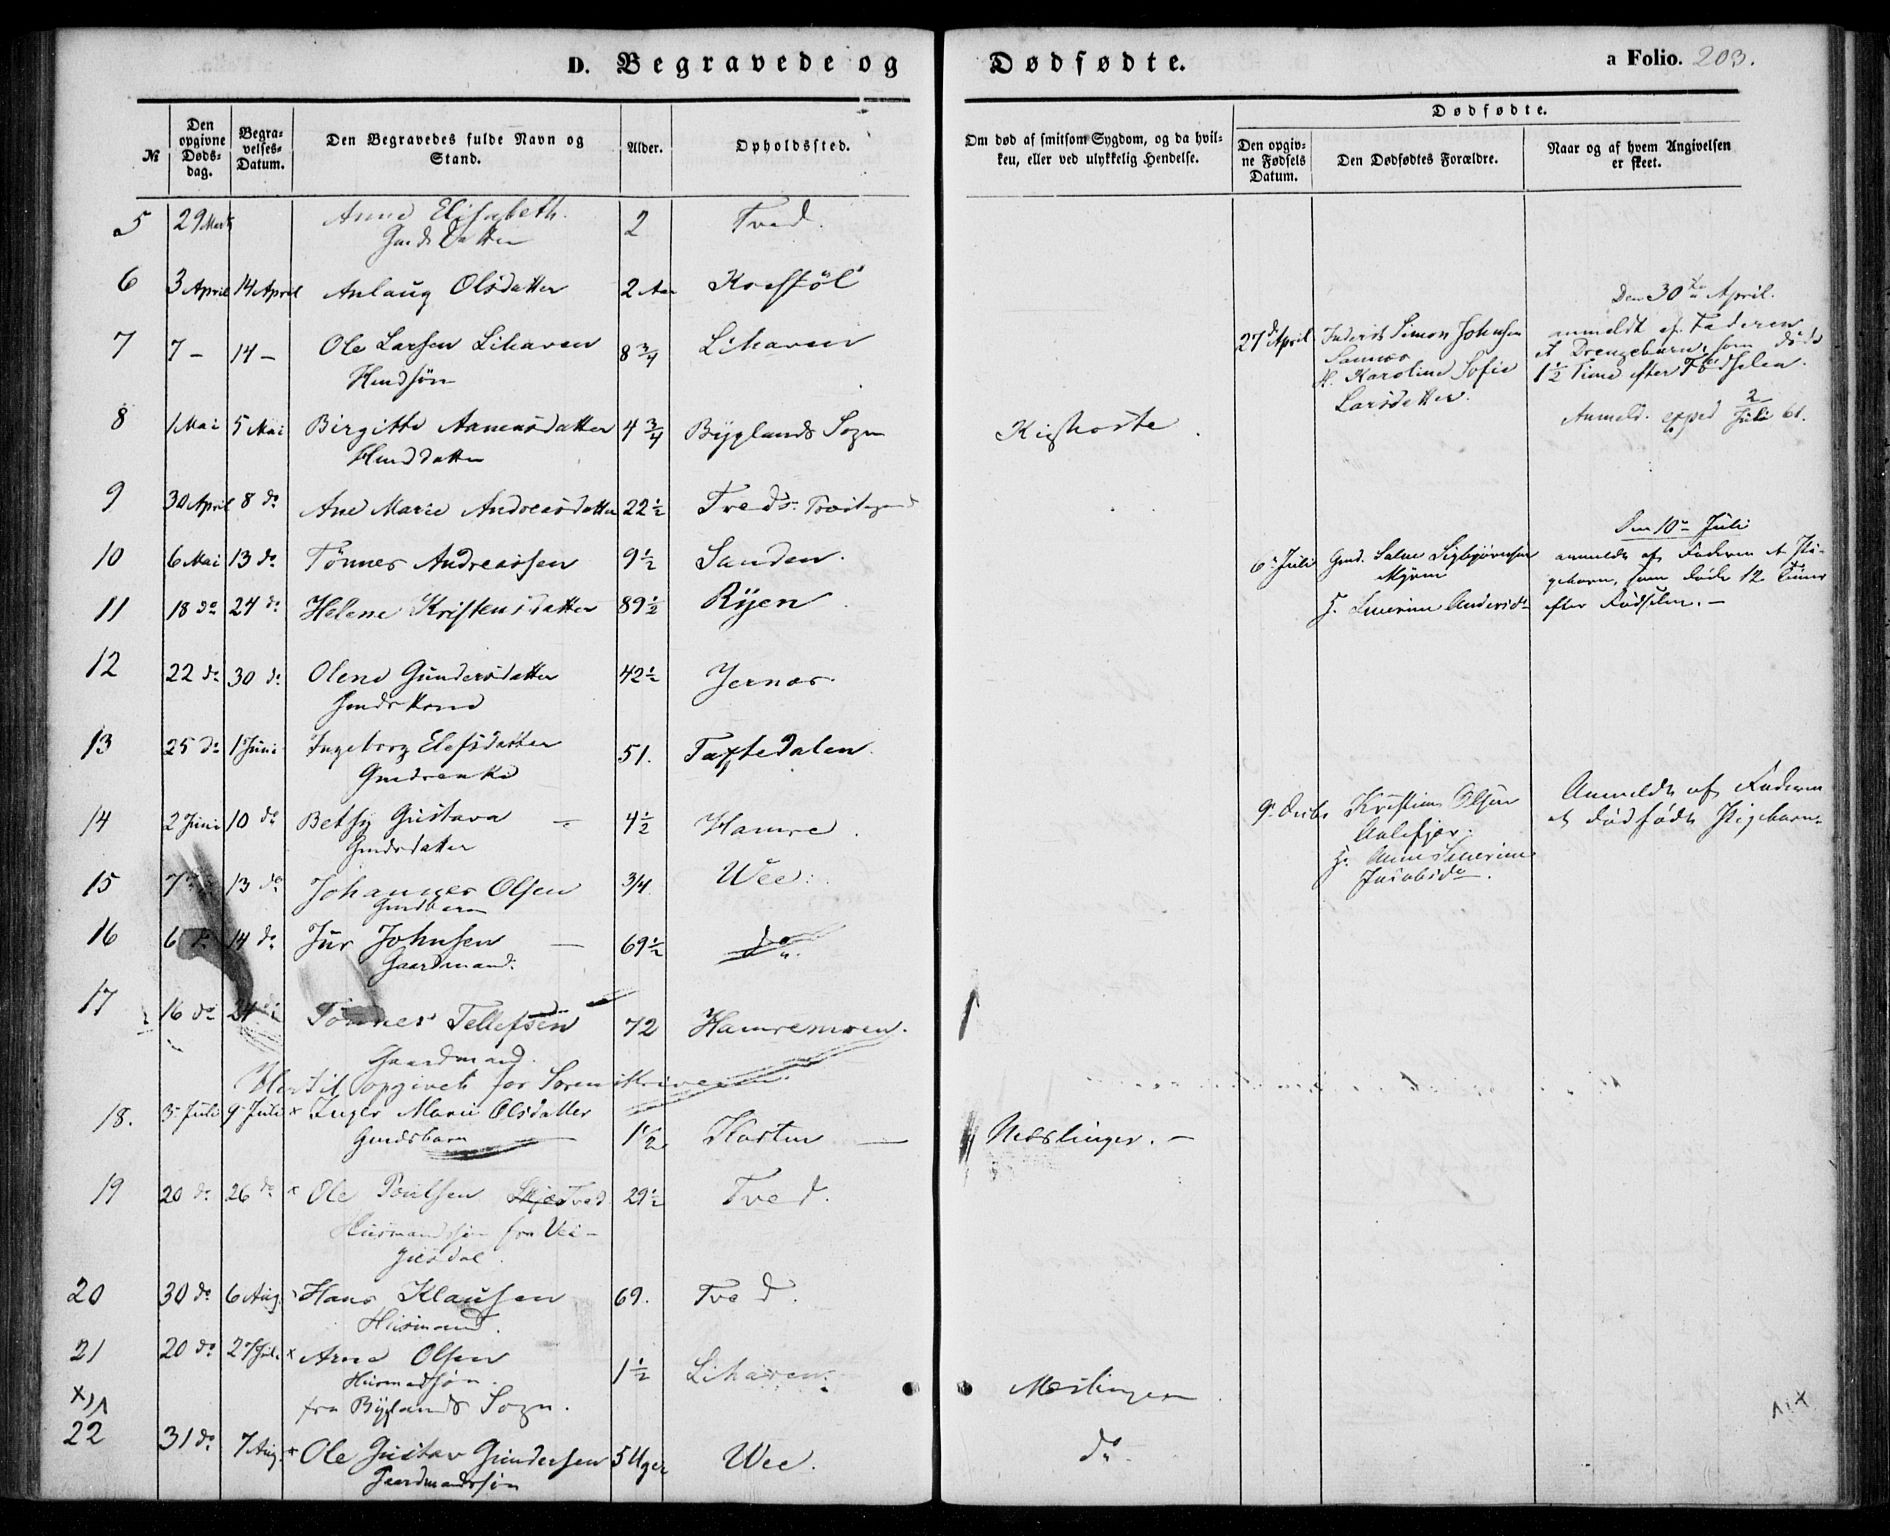 D. Begravede og Dødfødte.
a Folio. 203.
№
Den opgivne Døds-dag.
Begra-velses-Datum.
Den Begravedes fulde Navn og Stand.
Alder.
Opholdssted.
Om død af smitsom Sygdom, og da hvil-ken, eller ved ulykkelig Hendelse.
Dødfødte.
Den opgiv-ne Fødsels Datum.
Den Dødfødtes Forældre.
Naar og af hvem Angivelsen er skeet.
5 29 Marts Anne Elisabeth. 2 Tved.
Gmds Datter
6 3 April 14 April Anlaug Olsdatter 2 Aar
7 7 – 14 – Ole Larsen Lihaven 8 3/4 Lihaven
Husdsøn
8 1 Mai 5 Mai Birgitte Aanensdatter 4 3/4 Byglands Sogn Kighoste
Husddatter
9 30 April 8 do Ane Marie Andreasdatter 22 1/2 Tveds
10 6 Mai 13 do Tønnes Andreassen 9 1/2 Sanden.
11 18 do 24 do Helene Kristensdatter 89 1/2 Ryen
12 22 do 30 do Olene Gundersdatter 42 1/2 Jernes
Gmds Kone
13 25 do 1 Juni Ingeborg Elefsdatter 51. Taftedalen
Gmdsenke
14 2 Juni 10 do Betsy Gustava – 4 1/2 Hamre
Gmdsdatter
15 7 13 do Johannes Olsen 3/4 Wee.
Gmdbarn
16 6 do 14 do Jur Johnsen – 69 1/2 do
Gaardmand.
17 16 do 24 do Tønnes Tellefsen 72 Hamremoen.
Gaardmand.
Hertil opgivet for Sorenskriveren.
18. 3 Juli 9 Juli x Inger Marie Olsdatter
Gmdsbarn 1 1/2 Kosten – Meslinger. –
19 20 do 26 do x Ole Poulsen Tved 29 1/2 Tved.
Husmandssøn fra Vei-
gusdal.
20 30 do 6 Aug. Hans Klausen 69. Tved.
Husmand.
21 20 do 27 Juli x Arne Olsen 1 1/2 Lihaven.
Husmadsøn.
fra Byglands Sogn. Meslinger
22 31 do 7 Aug. x Ole Gustav Gundersen 5 Uger Wee. do
Gaardmandssøn
27de April Inderst Simon Johnsen
H. Karoline Sofie
Larsdatter.
Den 30te April.
anmeldt af Faderen
et Drengebarn, som døde
1 1/2 Time efter Fødselen.
Anmeld. exped 2/Juli 61.
6 Juli Gmd. Salve Sigbjørnsen
Myren
H. Severine Andersd.
Den 10de Juli
anmeldt af Faderen et Pi-
gebarn, som døde 12 Timer
efter Fødselen. –
9 Decbr Kristian Olsen
Aalefjær.
H. Anne Severine
Jacobsdr.
Anmeldt af Faderen
et dødfødt Pigebarn.